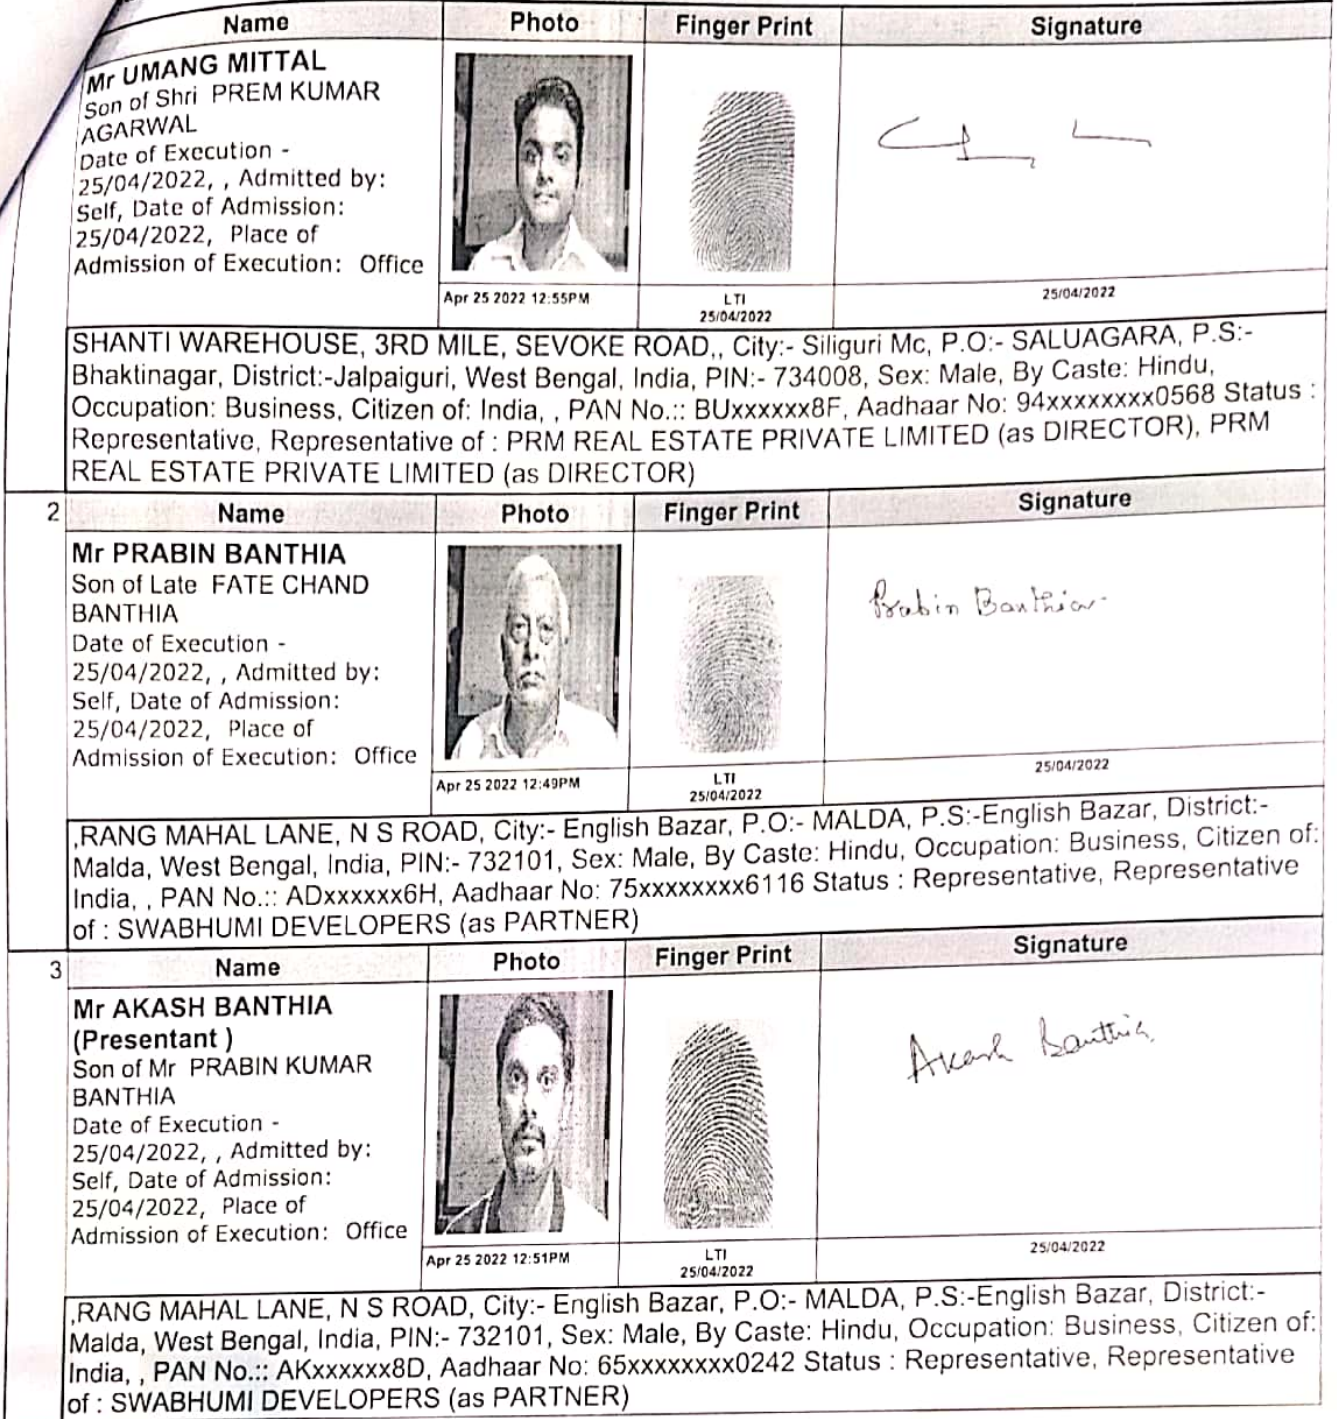 Name Photo Finger Print Signature
Mr UMANG MITTAL
Son of Shri PREM KUMAR
AGARWAL
Date of Execution -
25/04/2022, , Admitted by:
Self, Date of Admission:
25/04/2022, Place of
Admission of Execution: Office
Apr 25 2022 12:55PM
LTI
25/04/2022
25/04/2022
SHANTI WAREHOUSE, 3RD MILE, SEVOKE ROAD,, City:- Siliguri Mc, P.O:- SALUAGARA, P.S:-
Bhaktinagar, District:-Jalpaiguri, West Bengal, India, PIN:- 734008, Sex: Male, By Caste: Hindu,
Occupation: Business, Citizen of: India, , PAN No.:: BUxxxxxx8F, Aadhaar No: 94xxxxxxxx0568 Status :
Representative, Representative of : PRM REAL ESTATE PRIVATE LIMITED (as DIRECTOR), PRM
REAL ESTATE PRIVATE LIMITED (as DIRECTOR)
2 Name Photo Finger Print Signature
Mr PRABIN BANTHIA
Son of Late FATE CHAND
BANTHIA
Date of Execution -
25/04/2022, , Admitted by:
Self, Date of Admission:
25/04/2022, Place of
Admission of Execution: Office
Apr 25 2022 12:49PM
LTI
25/04/2022
Prabin Banthia
25/04/2022
,RANG MAHAL LANE, N S ROAD, City:- English Bazar, P.O:- MALDA, P.S:-English Bazar, District:-
Malda, West Bengal, India, PIN:- 732101, Sex: Male, By Caste: Hindu, Occupation: Business, Citizen of:
India, , PAN No.:: ADxxxxxx6H, Aadhaar No: 75xxxxxxxx6116 Status : Representative, Representative
of : SWABHUMI DEVELOPERS (as PARTNER)
3 Name Photo Finger Print Signature
Mr AKASH BANTHIA
(Presentant )
Son of Mr PRABIN KUMAR
BANTHIA
Date of Execution -
25/04/2022, , Admitted by:
Self, Date of Admission:
25/04/2022, Place of
Admission of Execution: Office
Apr 25 2022 12:51PM
LTI
25/04/2022
Akash Banthia
25/04/2022
,RANG MAHAL LANE, N S ROAD, City:- English Bazar, P.O:- MALDA, P.S:-English Bazar, District:-
Malda, West Bengal, India, PIN:- 732101, Sex: Male, By Caste: Hindu, Occupation: Business, Citizen of:
India, , PAN No.:: AKxxxxxx8D, Aadhaar No: 65xxxxxxxx0242 Status : Representative, Representative
of : SWABHUMI DEVELOPERS (as PARTNER)